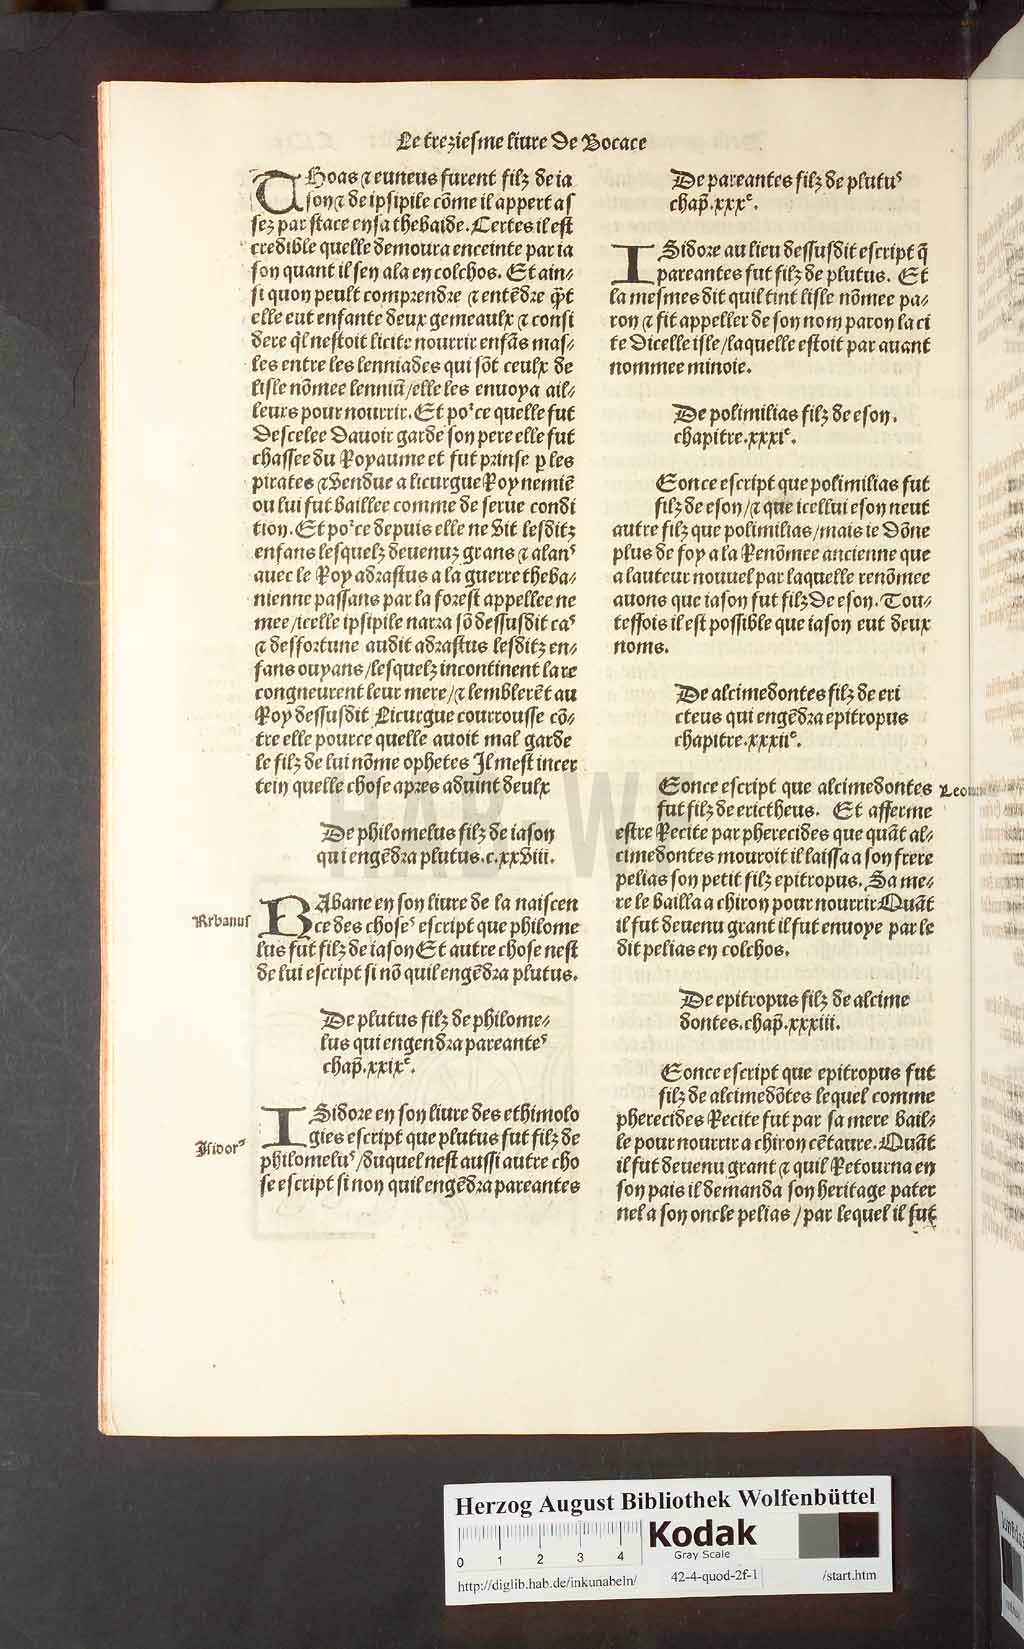 Le treziesme liure de Bocace
THoas ⁊ euneus furent filz de ia
son ⁊ de ipsipile cõme il appert as
sez par stace en sa thebaide. Certes il est
credible quelle demoura enceinte par ia
son quant il sen ala en colchos. Et ain-
si quon peult comprendre ⁊ entẽdre q̃t
elle eut enfante deux gemeaulx ⁊ consi
dere q̃l nestoit licite nourrir enfãs mas-
les entre les lenniades qui sõt ceulx de
lisle nõmee lenniũ/elle les enuoya ail-
leurs pour nourrir. Et poꝛce quelle fut
descelee dauoir garde son pere elle fut
chassee du Royaume et fut prinse p les
pirates ⁊ vendue a licurgue Roy nemiẽ
ou lui fut baillee comme de serue condi
tion. Et poꝛce depuis elle ne vit lesditz
enfans lesquelz deuenuz grans ⁊ alanꝰ
auec le Roy adrastus a la guerre theba-
nienne passans par la forest appellee ne
mee/icelle ipsipile narra sõ dessusdit caꝰ
⁊ desfortune audit adrastus lesditz en-
fans ouyans/lesquelz incontinent la re
congneurent leur mere/⁊ lemblerẽt au
Roy dessusdit Licurgue courrousse cõ-
tre elle pource quelle auoit mal garde
le filz de lui nõme ophetes Il mest incer
tein quelle chose apres aduint deulx
De philomelus filz de iason
qui engẽdra plutus. c. xxviii.
Rrbanus
RAbane en son liure de la naiscen
ce des choseꝰ escript que philome
lus fut filz de iason Et autre chose nest
de lui escript si nõ quil engẽdra plutus.
De plutus filz de philome-
lus qui engendra pareanteꝰ
chap̃. xxixᵉ.
Isidorꝰ
ISidore en son liure des ethimolo
gies escript que plutus fut filz de
philomeluꝰ/duquel nest aussi autre cho
se escript si non quil engẽdra pareantes
De pareantes filz de plutuꝰ
chap̃. xxxᵉ.
ISidore au lieu dessusdit escript q̃
pareantes fut filz de plutus. Et
la mesmes dit quil tint lisle nõmee pa-
ron ⁊ fit appeller de son nom paron la ci
te dicelle isle/laquelle estoit par auant
nommee minoie.
De polimilias filz de eson.
chapitre. xxxiᵉ.
Eonce escript que polimilias fut
filz de eson/⁊ que icellui eson neut
autre filz que polimilias/mais ie dõne
plus de foy a la Renõmee ancienne que
a lauteur nouuel par laquelle renõmee
auons que iason fut filz de eson. Tou-
tesfois il est possible que iason eut deux
noms.
De alcimedontes filz de eri
cteus qui engẽdra epitropus
chapitre. xxxiiᵉ.
Eonce escript que alcimedontes
fut filz de erictheus. Et afferme
estre Recite par pherecides que quãt al-
cimedontes mouroit il laissa a son frere
pelias son petit filz epitropus. Sa me-
re le bailla a chiron pour nourrir Quãt
il fut deuenu grant il fut enuoye par le
dit pelias en colchos.
De epitropus filz de alcime
dontes. chap̃. xxxiii.
Eonce escript que epitropus fut
filz de alcimedõtes lequel comme
pherecides Recite fut par sa mere bail-
le pour nourrir a chiron cẽtaure. Quãt
il fut deuenu grant ⁊ quil Retourna en
son pais il demanda son heritage pater
nel a son oncle pelias/par lequel il fut
HAB-W
Herzog August Bibliothek Wolfenbüttel
0 1 2 3 4
Kodak
Gray Scale
http://diglib.hab.de/inkunabeln/ 42-4-quod-2f-1 /start.htm